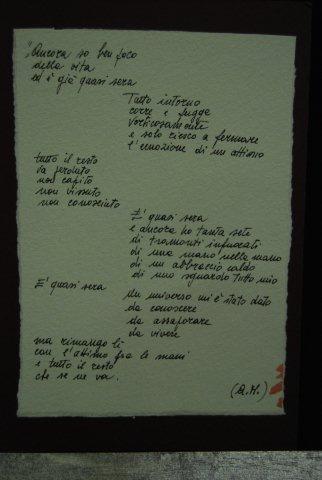 "Ancora so ben poco
della vita
ed è già quasi sera
Tutto intorno
corre e fugge
vorticosamente
e solo riesco a fermare
l'emozione di un attimo
tutto il resto
va perduto
non capito
non vissuto
non conosciuto
E' quasi sera
e ancora ho tanta sete
di tramonti infuocati
di una mano nella mano
di un abbraccio caldo
di uno sguardo tutto mio
E' quasi sera
Un universo mi è stato dato
da conoscere
da assaporare
da vivere
ma rimango lì
con l'attimo fra le mani
e tutto il resto
che se ne va.
(A.M.)